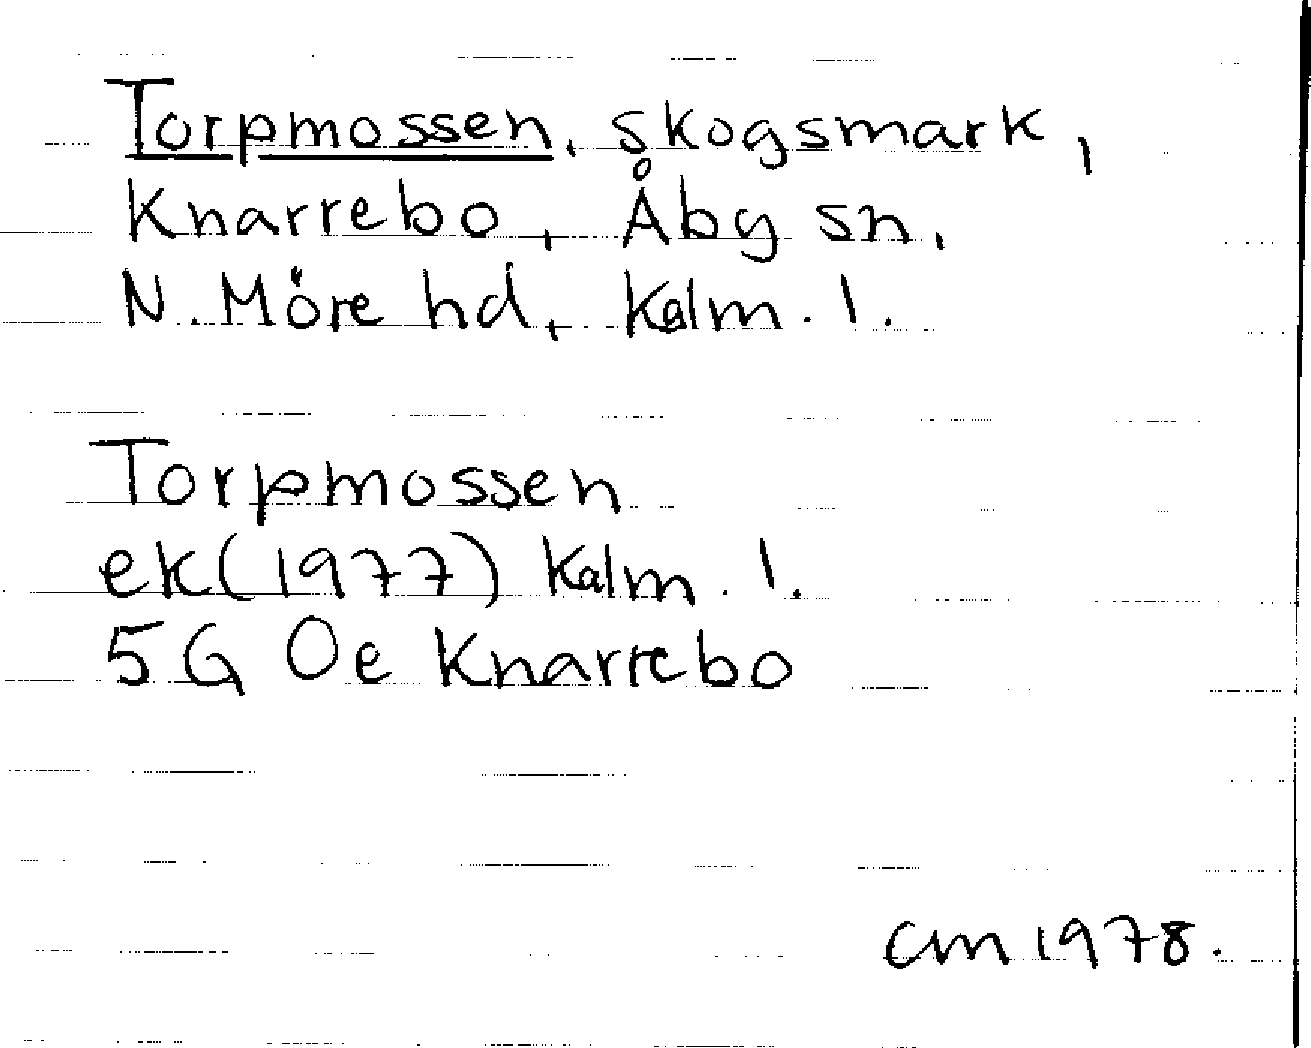 Torpmossen, skogsmark,
Knarrebo, Åby sn,
N. Möre hd, Kalm. l.
Torpmossen
ek(1977) Kalm. l.
5G Oe Knarrebo
CM 1978.